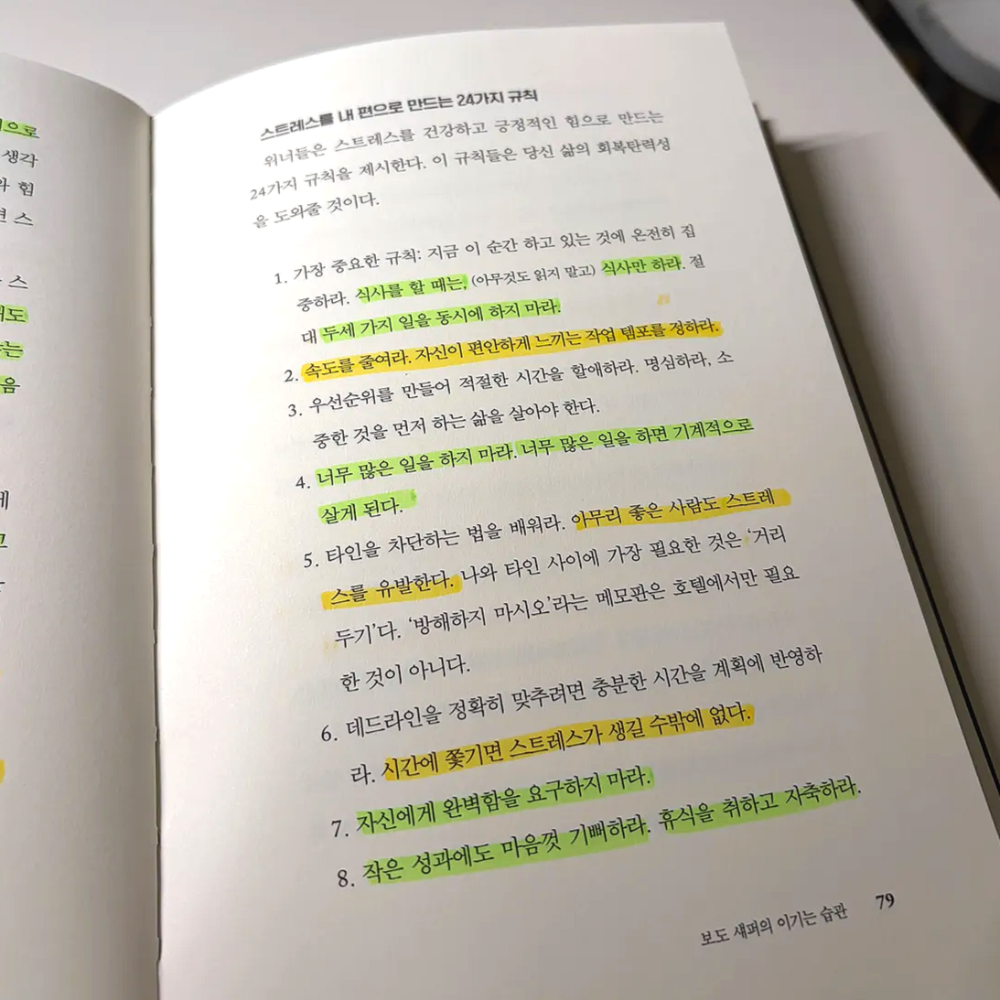 으로
생각
와 힘
면 스
스
도
는
음
에
고
스트레스를 내 편으로 만드는 24가지 규칙
위너들은 스트레스를 건강하고 긍정적인 힘으로 만드는
24가지 규칙을 제시한다. 이 규칙들은 당신 삶의 회복탄력성
을 도와줄 것이다.
1. 가장 중요한 규칙: 지금 이 순간 하고 있는 것에 온전히 집
중하라. 식사를 할 때는, (아무것도 읽지 말고) 식사만 하라. 절
대 두세 가지 일을 동시에 하지 마라.
2. 속도를 줄여라. 자신이 편안하게 느끼는 작업 템포를 정하라.
3. 우선순위를 만들어 적절한 시간을 할애하라. 명심하라, 소
중한 것을 먼저 하는 삶을 살아야 한다.
4. 너무 많은 일을 하지 마라. 너무 많은 일을 하면 기계적으로
살게 된다.
5. 타인을 차단하는 법을 배워라. 아무리 좋은 사람도 스트레
스를 유발한다. 나와 타인 사이에 가장 필요한 것은 ‘거리
두기’다. ‘방해하지 마시오’라는 메모판은 호텔에서만 필요
한 것이 아니다.
6. 데드라인을 정확히 맞추려면 충분한 시간을 계획에 반영하
라. 시간에 쫓기면 스트레스가 생길 수밖에 없다.
7. 자신에게 완벽함을 요구하지 마라.
8. 작은 성과에도 마음껏 기뻐하라. 휴식을 취하고 자축하라.
보도 섀퍼의 이기는 습관 79